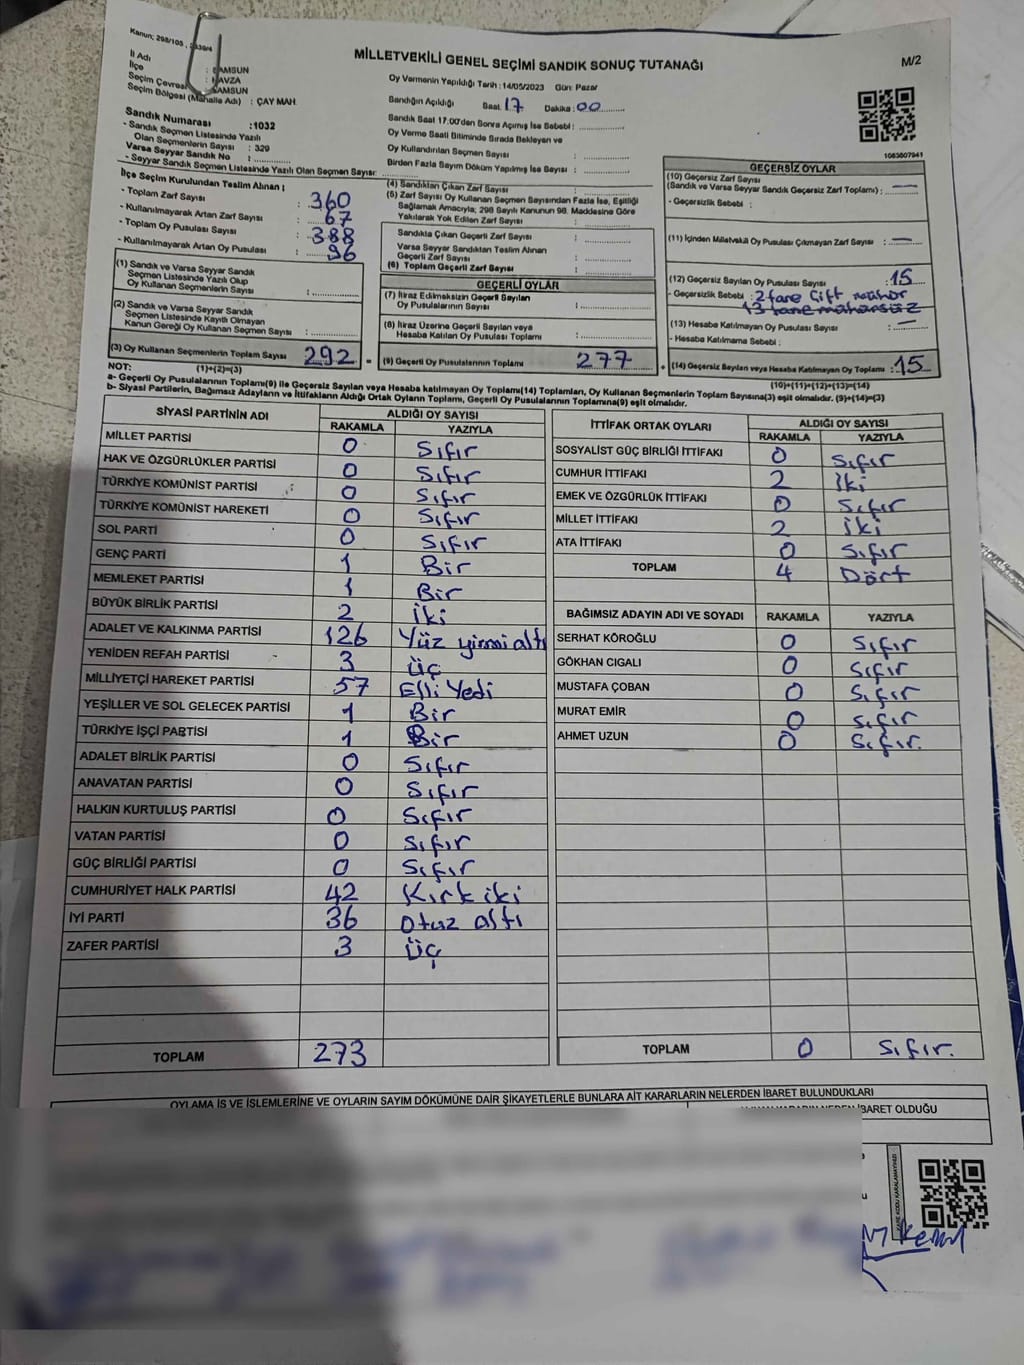 Kanun; 298/105 , 2839/4
MİLLETVEKİLİ GENEL SEÇİMİ SANDIK SONUÇ TUTANAĞI
M/2
İl Adı : SAMSUN
İlçe : HAVZA
Seçim Çevresi : SAMSUN
Seçim Bölgesi (Mahalle Adı) : ÇAY MAH.
Oy Vermenin Yapıldığı Tarih : 14/05/2023 Gün: Pazar
Sandığın Açıldığı Saat: 17 Dakika : 00
Sandık Saat 17:00'den Sonra Açılmış İse Sebebi :
Oy Verme Saati Bitiminde Sırada Bekleyen ve
Oy Kullandırılan Seçmen Sayısı :
Birden Fazla Sayım Döküm Yapılmış İse Sayısı :
1083607941
Sandık Numarası : 1032
- Sandık Seçmen Listesinde Yazılı
Olan Seçmenlerin Sayısı : 329
Varsa Seyyar Sandık No :
- Seyyar Sandık Seçmen Listesinde Yazılı Olan Seçmen Sayısı:
İlçe Seçim Kurulundan Teslim Alınan ;
- Toplam Zarf Sayısı : 360
- Kullanılmayarak Artan Zarf Sayısı : 67
- Toplam Oy Pusulası Sayısı : 388
- Kullanılmayarak Artan Oy Pusulası : 96
(1) Sandık ve Varsa Seyyar Sandık
Seçmen Listesinde Yazılı Olup
Oy Kullanan Seçmenlerin Sayısı :
(2) Sandık ve Varsa Seyyar Sandık
Seçmen Listesinde Kayıtlı Olmayan
Kanun Gereği Oy Kullanan Seçmen Sayısı :
(3) Oy Kullanan Seçmenlerin Toplam Sayısı 292 =
(4) Sandıktan Çıkan Zarf Sayısı :
(5) Zarf Sayısı Oy Kullanan Seçmen Sayısından Fazla İse, Eşitliği
Sağlamak Amacıyla; 298 Sayılı Kanunun 98. Maddesine Göre
Yakılarak Yok Edilen Zarf Sayısı :
Sandıkta Çıkan Geçerli Zarf Sayısı :
Varsa Seyyar Sandıktan Teslim Alınan
Geçerli Zarf Sayısı :
(6) Toplam Geçerli Zarf Sayısı :
GEÇERLİ OYLAR
(7) İtiraz Edilmeksizin Geçerli Sayılan
Oy Pusulalarının Sayısı :
(8) İtiraz Üzerine Geçerli Sayılan veya
Hesaba Katılan Oy Pusulası Toplamı :
(9) Geçerli Oy Pusulalarının Toplamı 277 +
GEÇERSİZ OYLAR
(10) Geçersiz Zarf Sayısı
(Sandık ve Varsa Seyyar Sandık Geçersiz Zarf Toplamı) : —
- Geçersizlik Sebebi :
(11) İçinden Milletvekili Oy Pusulası Çıkmayan Zarf Sayısı : —
(12) Geçersiz Sayılan Oy Pusulası Sayısı : 15
- Geçersizlik Sebebi : 2 tane çift mühür
13 tane mühürsüz
(13) Hesaba Katılmayan Oy Pusulası Sayısı : —
- Hesaba Katılmama Sebebi :
(14) Geçersiz Sayılan veya Hesaba Katılmayan Oy Toplamı : 15
NOT: (1)+(2)=(3)
(10)+(11)+(12)+(13)=(14)
a- Geçerli Oy Pusulalarının Toplamı(9) ile Geçersiz Sayılan veya Hesaba katılmayan Oy Toplamı(14) Toplamları, Oy Kullanan Seçmenlerin Toplam Sayısına(3) eşit olmalıdır. (9)+(14)=(3)
b- Siyasi Partilerin, Bağımsız Adayların ve İttifakların Aldığı Ortak Oyların Toplamı, Geçerli Oy Pusulalarının Toplamına(9) eşit olmalıdır.
SİYASİ PARTİNİN ADI ALDIĞI OY SAYISI
RAKAMLA YAZIYLA
MİLLET PARTİSİ 0 Sıfır
HAK VE ÖZGÜRLÜKLER PARTİSİ 0 Sıfır
TÜRKİYE KOMÜNİST PARTİSİ 0 Sıfır
TÜRKİYE KOMÜNİST HAREKETİ 0 Sıfır
SOL PARTİ 0 Sıfır
GENÇ PARTİ 1 Bir
MEMLEKET PARTİSİ 1 Bir
BÜYÜK BİRLİK PARTİSİ 2 İki
ADALET VE KALKINMA PARTİSİ 126 Yüz yirmi altı
YENİDEN REFAH PARTİSİ 3 üç
MİLLİYETÇİ HAREKET PARTİSİ 57 Elli Yedi
YEŞİLLER VE SOL GELECEK PARTİSİ 1 Bir
TÜRKİYE İŞÇİ PARTİSİ 1 Bir
ADALET BİRLİK PARTİSİ 0 Sıfır
ANAVATAN PARTİSİ 0 Sıfır
HALKIN KURTULUŞ PARTİSİ 0 Sıfır
VATAN PARTİSİ 0 Sıfır
GÜÇ BİRLİĞİ PARTİSİ 0 Sıfır
CUMHURİYET HALK PARTİSİ 42 Kırk iki
İYİ PARTİ 36 otuz altı
ZAFER PARTİSİ 3 üç
TOPLAM 273
İTTİFAK ORTAK OYLARI ALDIĞI OY SAYISI
RAKAMLA YAZIYLA
SOSYALİST GÜÇ BİRLİĞİ İTTİFAKI 0 Sıfır
CUMHUR İTTİFAKI 2 İki
EMEK VE ÖZGÜRLÜK İTTİFAKI 0 Sıfır
MİLLET İTTİFAKI 2 İki
ATA İTTİFAKI 0 Sıfır
TOPLAM 4 Dört
BAĞIMSIZ ADAYIN ADI VE SOYADI RAKAMLA YAZIYLA
SERHAT KÖROĞLU 0 Sıfır
GÖKHAN CIGALI 0 Sıfır
MUSTAFA ÇOBAN 0 Sıfır
MURAT EMİR 0 Sıfır
AHMET UZUN 0 Sıfır.
TOPLAM 0 Sıfır.
OYLAMA İŞ VE İŞLEMLERİNE VE OYLARIN SAYIM DÖKÜMÜNE DAİR ŞİKAYETLERLE BUNLARA AİT KARARLARIN NELERDEN İBARET BULUNDUKLARI
İBARET OLDUĞU